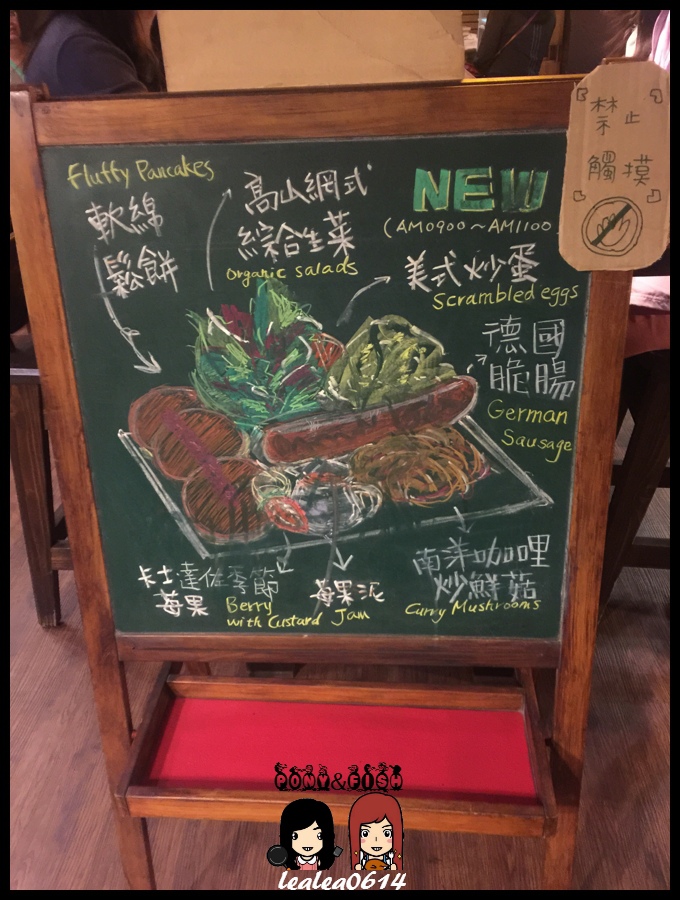 Fluffy Pancakes
軟綿
鬆餅
高山網式
綜合生菜
Organic salads
NEW
(AM0900~AM1100
美式炒蛋
Scrambled eggs
德國
脆腸
German
Sausage
卡士達佐季節
莓果
Berry
with Custard
莓果泥
Jam
南洋咖哩
炒鮮菇
Curry Mushrooms
禁止
觸摸
PONY&FISH
lealea0614